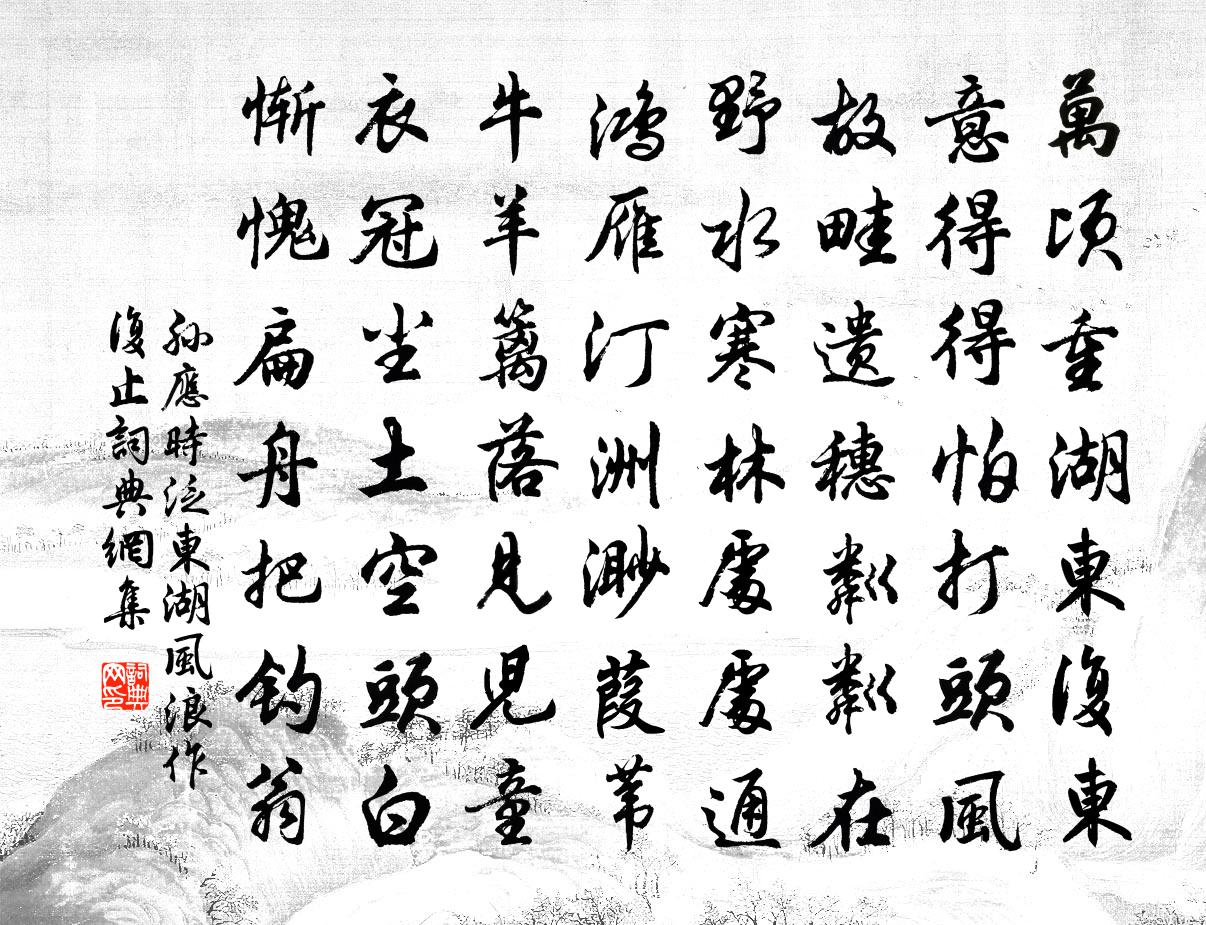 萬頃重湖東復東
意得得怕打頭風
故畦遺穗粼粼在
野水寒林處處通
鴻雁汀洲渺葭葦
牛羊籬落見兒童
衣冠尘土空頭白
慚愧扁舟把釣翁
孫應時泛東湖風浪作
復止詞典網集
詞典
网印